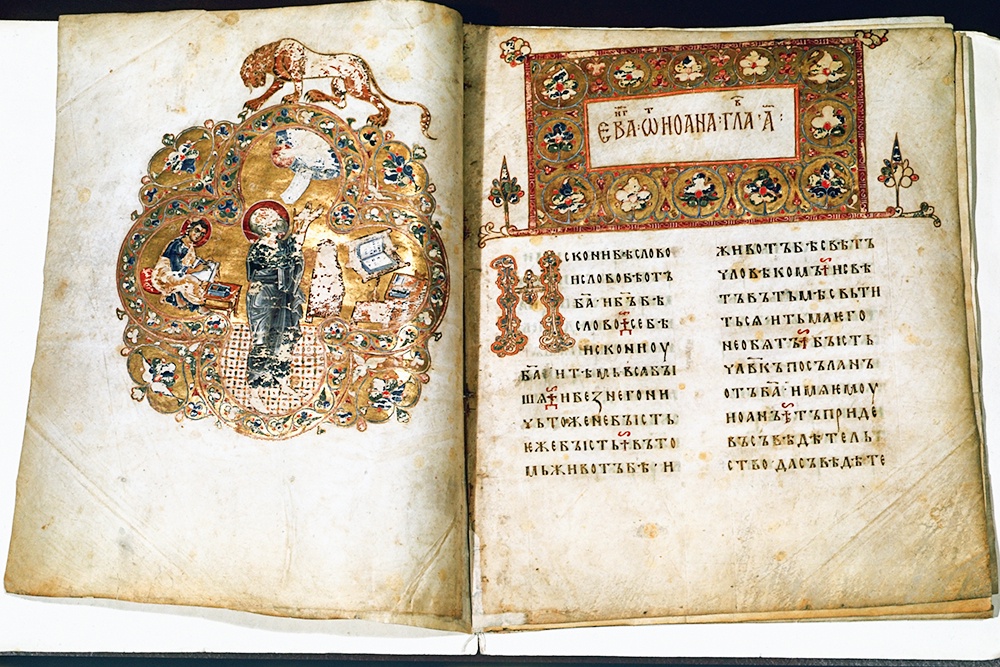 ЕВА҃Г · Ѡ҃Т ИОАНА · ГЛА҃В · А҃ :
ИСКОНИ БѢ СЛОВО
И СЛОВО БѢ ОТЪ
БА҃ · И БЪ҃ БѢ
СЛОВО · СЕ БѢ
ИСКОНИ ОУ
БА҃ · И ТѢМЬ ВСѦ БЫ
ШѦ · И БЕЗ НЕГО НИ
ЧЬТОЖЕ НЕ БЫСТЬ
ЕЖЕ БЫСТЬ · ВЪ ТО
МЬ ЖИВОТЪ БѢ · И
ЖИВОТЪ БѢ СВѢТЪ
ЧЛОВѢКОМЪ · И СВѢ
ТЪ ВЪ ТЬМѢ СВЬТИ
ТЬСѦ · И ТЬМА ЕГО
НЕ ОБѦТЪ · БЫСТЬ
ЧЛ҃ВКЪ ПОСЪЛАНЪ
ОТЪ БА҃ · ИМѦ ЕМОУ
ИОАНЪ · ТЪ ПРИДЕ
ВЪ СЪВѢДѢТЕЛЬ
СТВО · ДА СЪВѢДѢТЕ